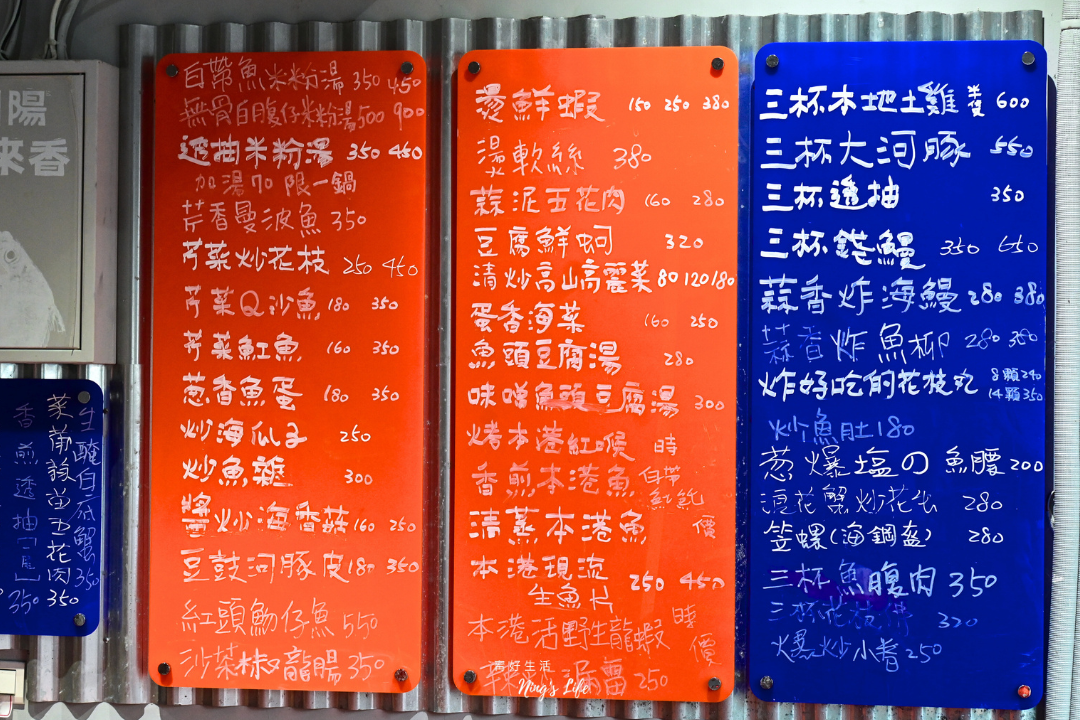 陽
來香
生醃白底蟹 350
五花肉 350
香煎透抽
白帶魚米粉湯 350 450
無骨白腹仔米粉湯 500 900
透抽米粉湯 350 450
加湯加 限一鍋
芹香曼波魚 350
芹菜炒花枝 250 450
芹菜Q沙魚 180 350
芹菜魟魚 160 350
葱香魚蛋 180 350
炒海瓜子 250
炒魚雜 300
醬炒海香菇 160 250
豆鼓河豚皮 180 350
紅頭魩仔魚 550
沙茶椒龍腸 350
燙鮮蝦 150 250 380
湯軟絲 380
蒜泥五花肉 160 280
豆腐鮮蚵 320
清炒高山高麗菜 80 120 180
蛋香海菜 160 250
魚頭豆腐湯 280
味噌魚頭豆腐湯 300
烤本港紅喉 時
香煎本港魚 白帶
清蒸本港魚 價
本港現流 250 450
生魚片
本港活野生龍蝦 時價
250
寻好生活
Nog's Life
三杯本地土雞 半隻 600
三杯大河豚 550
三杯透抽 350
三杯鰻 350 650
蒜香炸海鰻 280 380
蒜香炸魚柳 280 350
炸好吃的花枝丸 8顆240 14顆350
炒魚肚 180
葱爆塩の魚腰 200
浪花蟹炒花生 280
笠螺(海鋼盔) 280
三杯魚腹肉 350
三杯 320
爆炒小卷 250